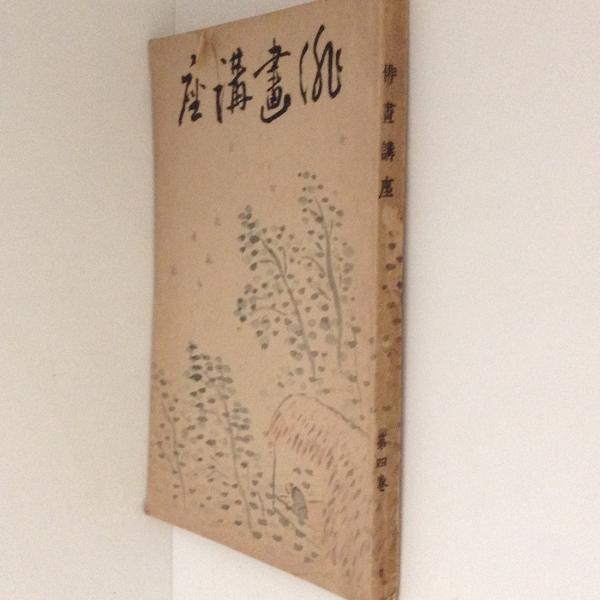 俳畫講座
俳畫講座
第四巻